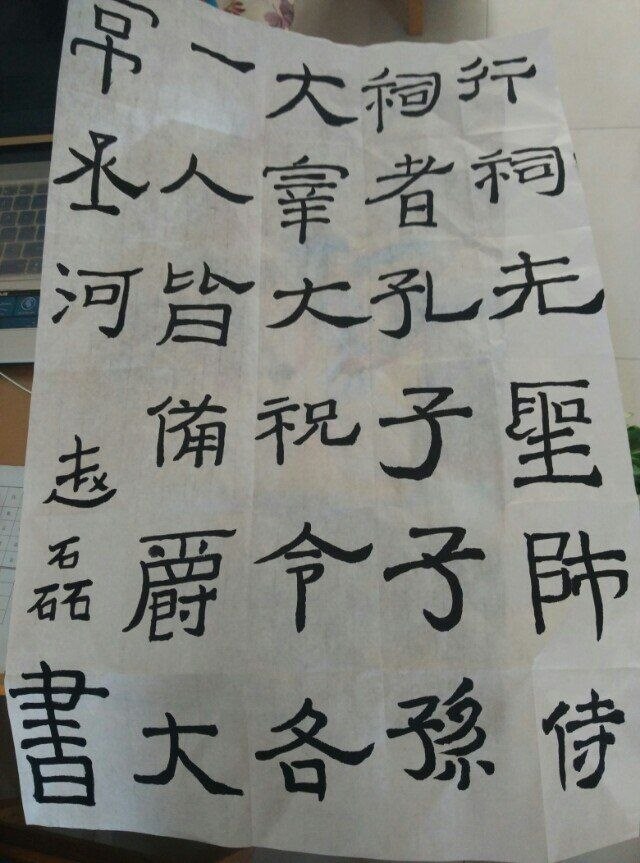 行祠先聖師侍
祠者孔子子孫
大宰大祝令各
一人皆備爵大
常丞河
赵磊書